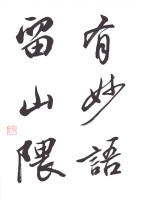 有妙語
留山隈